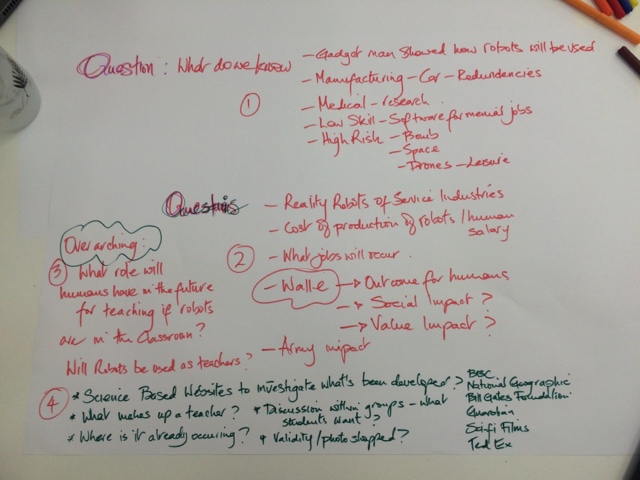 Question : What do we know
- Gadget man showed how robots will be used
- Manufacturing - Car - Redundencies
①
- Medical - research
- Low Skill - Software for menial jobs
- High Risk - Bomb
- Space
- Drones - Leisure
Questions
- Reality Robots of Service Industries
- Cost of production of robots / human salary
②
- What jobs will occur.
- Wall-e -> Outcome for humans
-> Social Impact ?
-> Value Impact ?
- Army impact
Overarching:
③ What role will
humans have in the future
for teaching if robots
are in the classroom?
Will Robots be used as teachers?
④
* Science Based Websites to investigate what's been developed ?
* What makes up a teacher?
* Where is it already occuring?
* Discussion within groups - what
students want ?
* Validity / photoshopped?
BBC
National Geographic
Bill Gates Foundation
Guardian
Scifi Films
Ted Ex